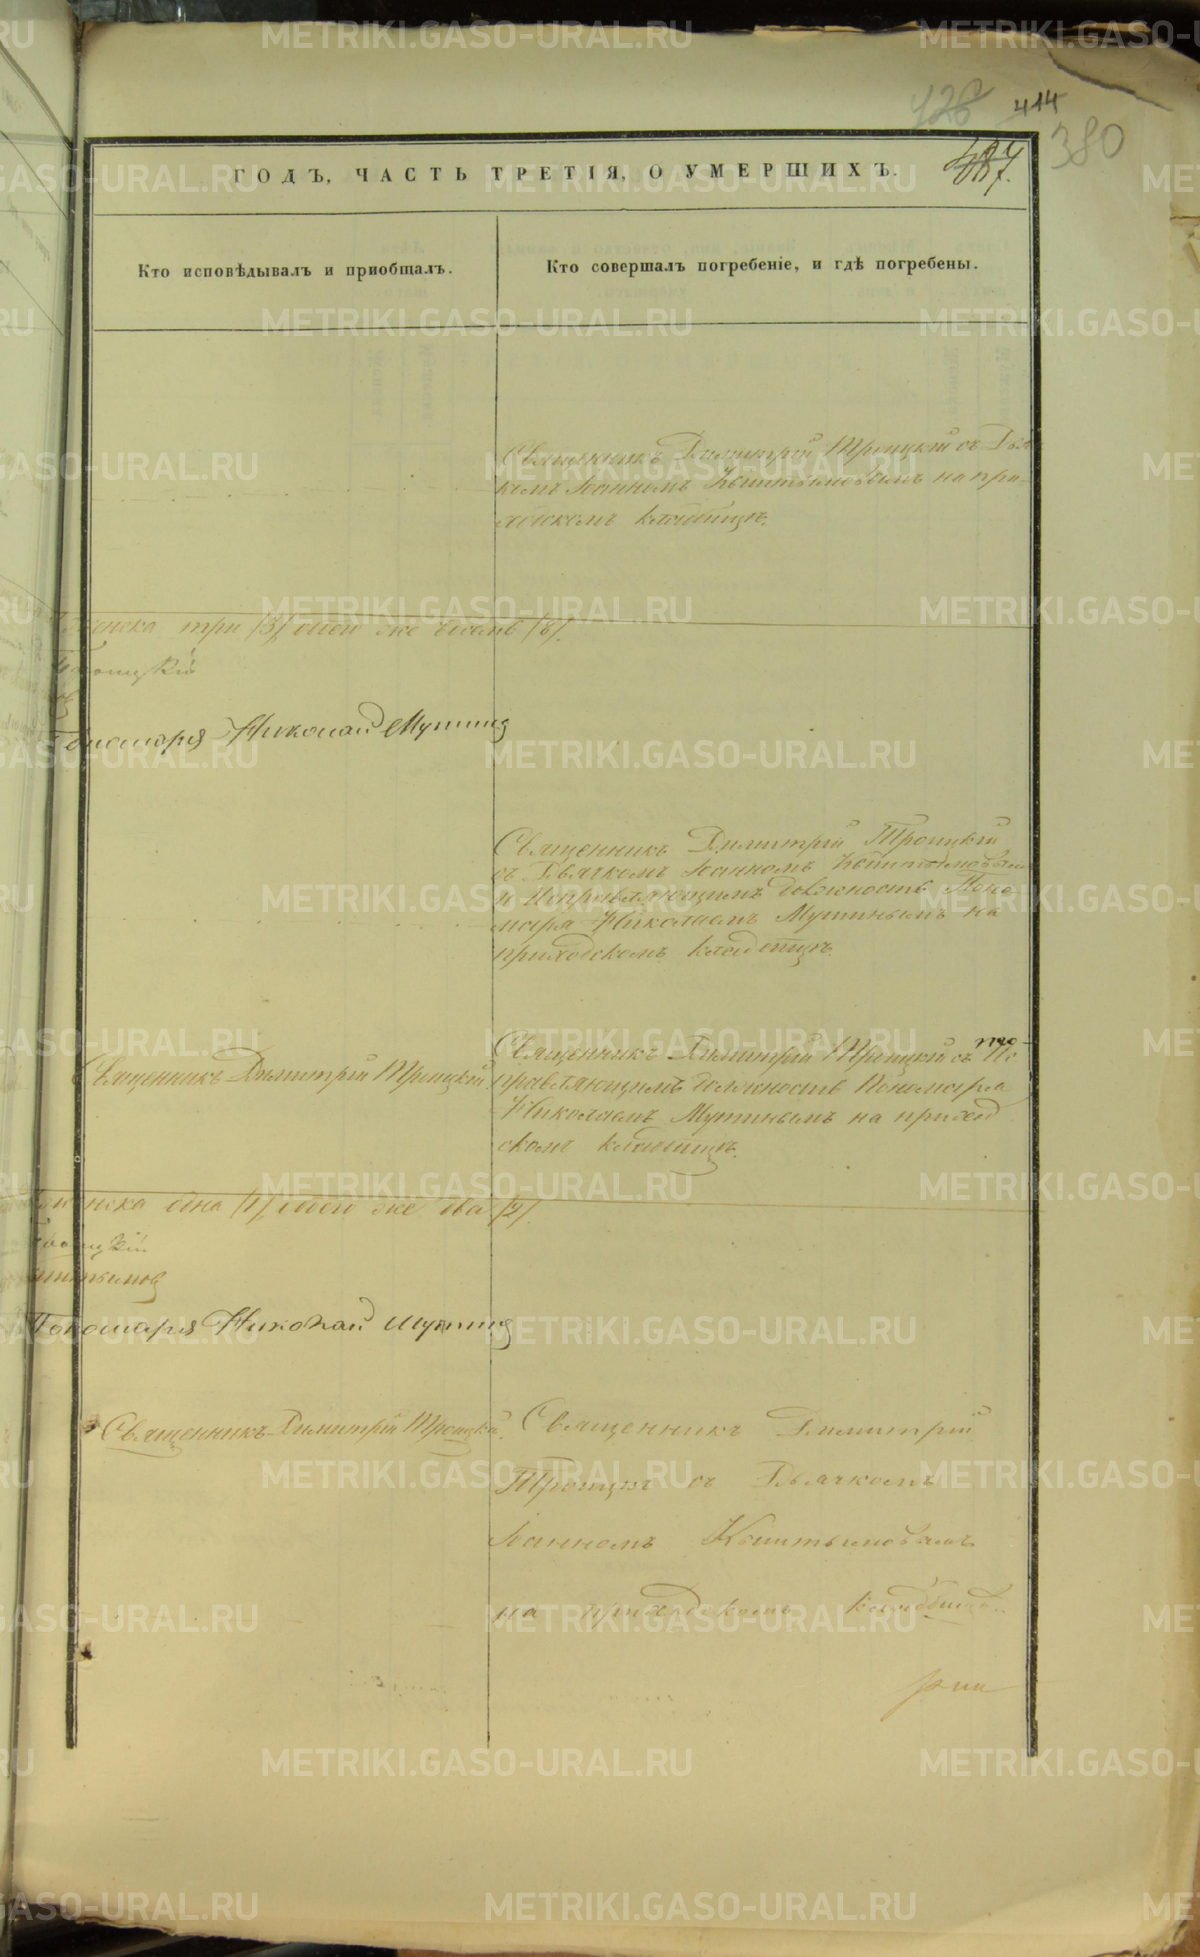 428 414
380
487.
ГОДЪ, ЧАСТЬ ТРЕТІЯ, О УМЕРШИХЪ.
Кто исповѣдывалъ и приобщалъ.
Кто совершалъ погребеніе, и гдѣ погребены.
Священникъ Димитрій Троицкій съ Дья
комъ Іоанномъ Кыштымовымъ на при-
ходскомъ кладбищѣ.
женска три /3/ обоего же восемь /8/.
Троицкій
Пономаря Николай Мутинъ
Священникъ Димитрій Троицкій
съ Дьячкомъ Іоанномъ Кыштымовымъ
и Исправляющимъ должность Поно
маря Николаемъ Мутинымъ на
приходскомъ кладбищѣ.
Священникъ Димитрій Троицкій
Священникъ Димитрій Троицкій съ Ис
правляющимъ должность Пономаря
Николаемъ Мутинымъ на приход
скомъ кладбищѣ.
женска одна /1/ обоего же два /2/.
Троицкій
штымовъ
Пономаря Николай Мутинъ
Священникъ Димитрій Троицкій.
Священникъ Димитрій
Троицкій съ Дьячкомъ
Іоанномъ Кыштымовымъ
на приходскомъ кладбищѣ.
METRIKI.GASO-URAL.RU